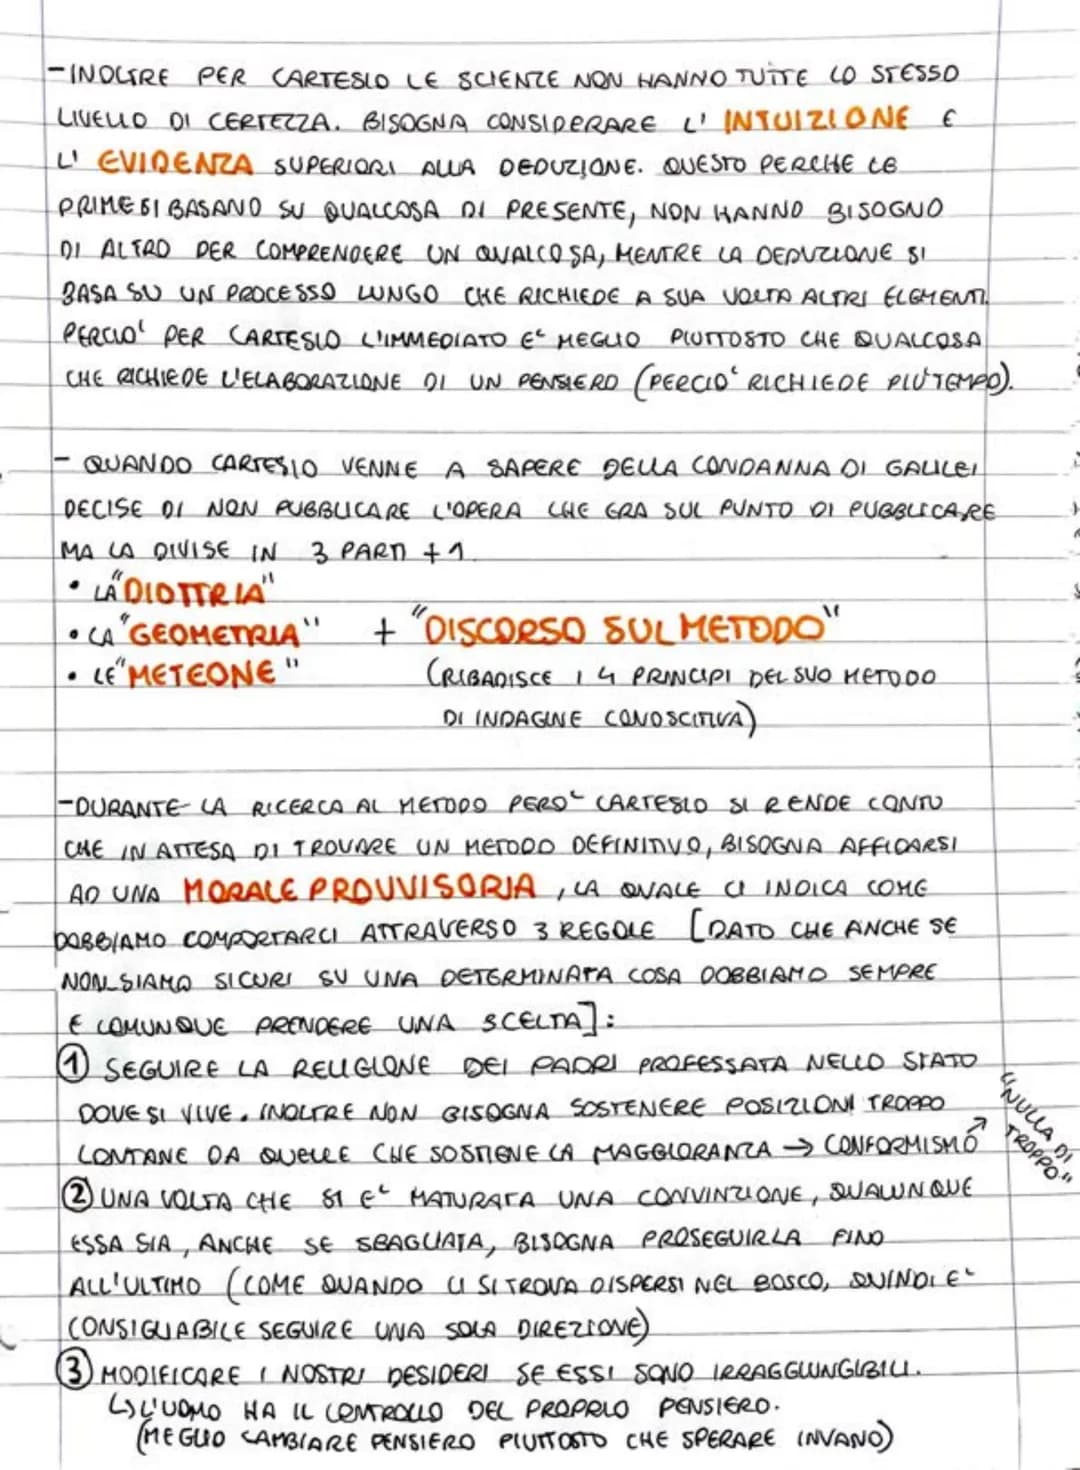 -INOLTRE PER CARTESIO LE SCIENZE NON HANNO TUTTE LO STESSO
LIVELLO DI CERTEZZA. BISOGNA CONSIDERARE L' INTUIZIONE E
L' EVIDENZA SUPERIORI ALLA DEDUZIONE. QUESTO PERCHE LE
PRIME SI BASANO SU QUALCOSA DI PRESENTE, NON HANNO BISOGNO
DI ALTRO PER COMPRENDERE UN QUALCOSA, MENTRE LA DEDUZIONE SI
BASA SU UN PROCESSO LUNGO CHE RICHIEDE A SUA VOLTA ALTRI ELEMENTI.
PERCIO' PER CARTESIO L'IMMEDIATO E' MEGLIO PIUTTOSTO CHE QUALCOSA
CHE RICHIEDE L'ELABORAZIONE DI UN PENSIERO (PERCIO' RICHIEDE PIU' TEMPO).
- QUANDO CARTESIO VENNE A SAPERE DELLA CONDANNA DI GALILEI
DECISE DI NON PUBBLICARE L'OPERA CHE ERA SUL PUNTO DI PUBBLICARE
MA LA DIVISE IN 3 PARTI + 1
• LA "DIOTTRIA"
• LA "GEOMETRIA" + "DISCORSO SUL METODO"
• LE "METEONE" (RIBADISCE I 4 PRINCIPI DEL SUO METODO
DI INDAGINE CONOSCITIVA)
-DURANTE LA RICERCA AL METODO PERO' CARTESIO SI RENDE CONTO
CHE IN ATTESA DI TROVARE UN METODO DEFINITIVO, BISOGNA AFFIDARSI
AD UNA MORALE PROVVISORIA, LA QUALE CI INDICA COME
DOBBIAMO COMPORTARCI ATTRAVERSO 3 REGOLE [DATO CHE ANCHE SE
NON SIAMO SICURI SU UNA DETERMINATA COSA DOBBIAMO SEMPRE
E COMUNQUE PRENDERE UNA SCELTA]:
① SEGUIRE LA RELIGIONE DEI PADRI PROFESSATA NELLO STATO
DOVE SI VIVE. INOLTRE NON BISOGNA SOSTENERE POSIZIONI TROPPO
LONTANE DA QUELLE CHE SOSTIENE LA MAGGIORANZA → CONFORMISMO ↗ "NULLA DI
TROPPO"
② UNA VOLTA CHE SI E' MATURATA UNA CONVINZIONE, QUALUNQUE
ESSA SIA, ANCHE SE SBAGLIATA, BISOGNA PROSEGUIRLA FINO
ALL'ULTIMO (COME QUANDO CI SI TROVA DISPERSI NEL BOSCO, QUINDI E'
CONSIGLIABILE SEGUIRE UNA SOLA DIREZIONE)
③ MODIFICARE I NOSTRI DESIDERI SE ESSI SONO IRRAGGIUNGIBILI.
↳ L'UOMO HA IL CONTROLLO DEL PROPRIO PENSIERO.
(MEGLIO CAMBIARE PENSIERO PIUTTOSTO CHE SPERARE INVANO)